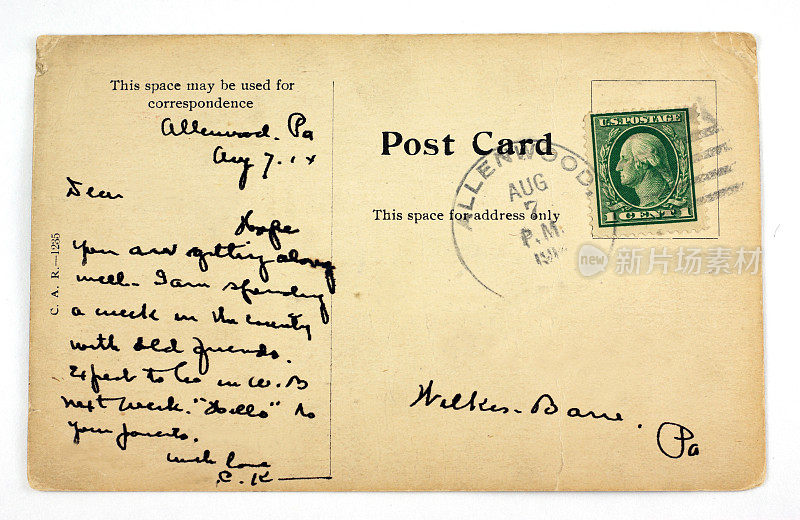 This space may be used for
correspondence
Allenwood. Pa
Aug 7. 14
Dear
Hope
you are getting along
well - I am spending
a week in the county
with old friends.
Expect to be in W. B
next week. "Hello" to
your parents.
with love
C. K
C. A. R.—1235
Post Card
This space for address only
ALLENWOOD,
AUG
7
P.M.
U.S. POSTAGE
1 CENT 1
Wilkes-Barre.
Pa
new 新片场素材